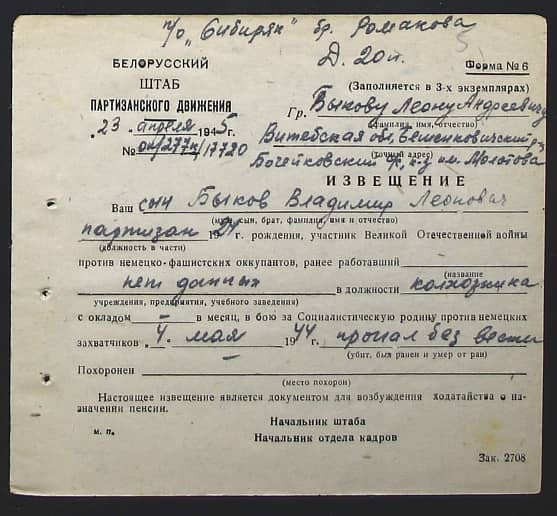 п/о „Сибиряк" бр. Романова
Д. 20 п.
БЕЛОРУССКИЙ
ШТАБ
ПАРТИЗАНСКОГО ДВИЖЕНИЯ
„23" апреля 1945г.
№ 04/277н/17720
Форма № 6
(Заполняется в 3-х экземплярах)
Гр. Быкову Леону Андреевичу
(фамилия, имя, отчество)
Витебская обл, Бешенковичский р-н
(точный адрес)
Бочейковский к-з им. Молотова
ИЗВЕЩЕНИЕ
Ваш сын Быков Владимир Леонович
(муж, сын, брат, фамилия, имя и отчество)
партизан 1924 г. рождения, участник Великой Отечественной войны
(должность в части)
против немецко-фашистских оккупантов, ранее работавший
(название
нет данных в должности колхозника
учреждения, предприятия, учебного заведения)
с окладом — в месяц, в бою за Социалистическую родину против немецких
захватчиков „4" мая 1944 г. пропал без вести
(убит, был ранен и умер от ран)
Похоронен —
(место похорон)
Настоящее извещение является документом для возбуждения ходатайства о на-
значении пенсии.
Начальник штаба
м. п.
Начальник отдела кадров
Зак. 2708